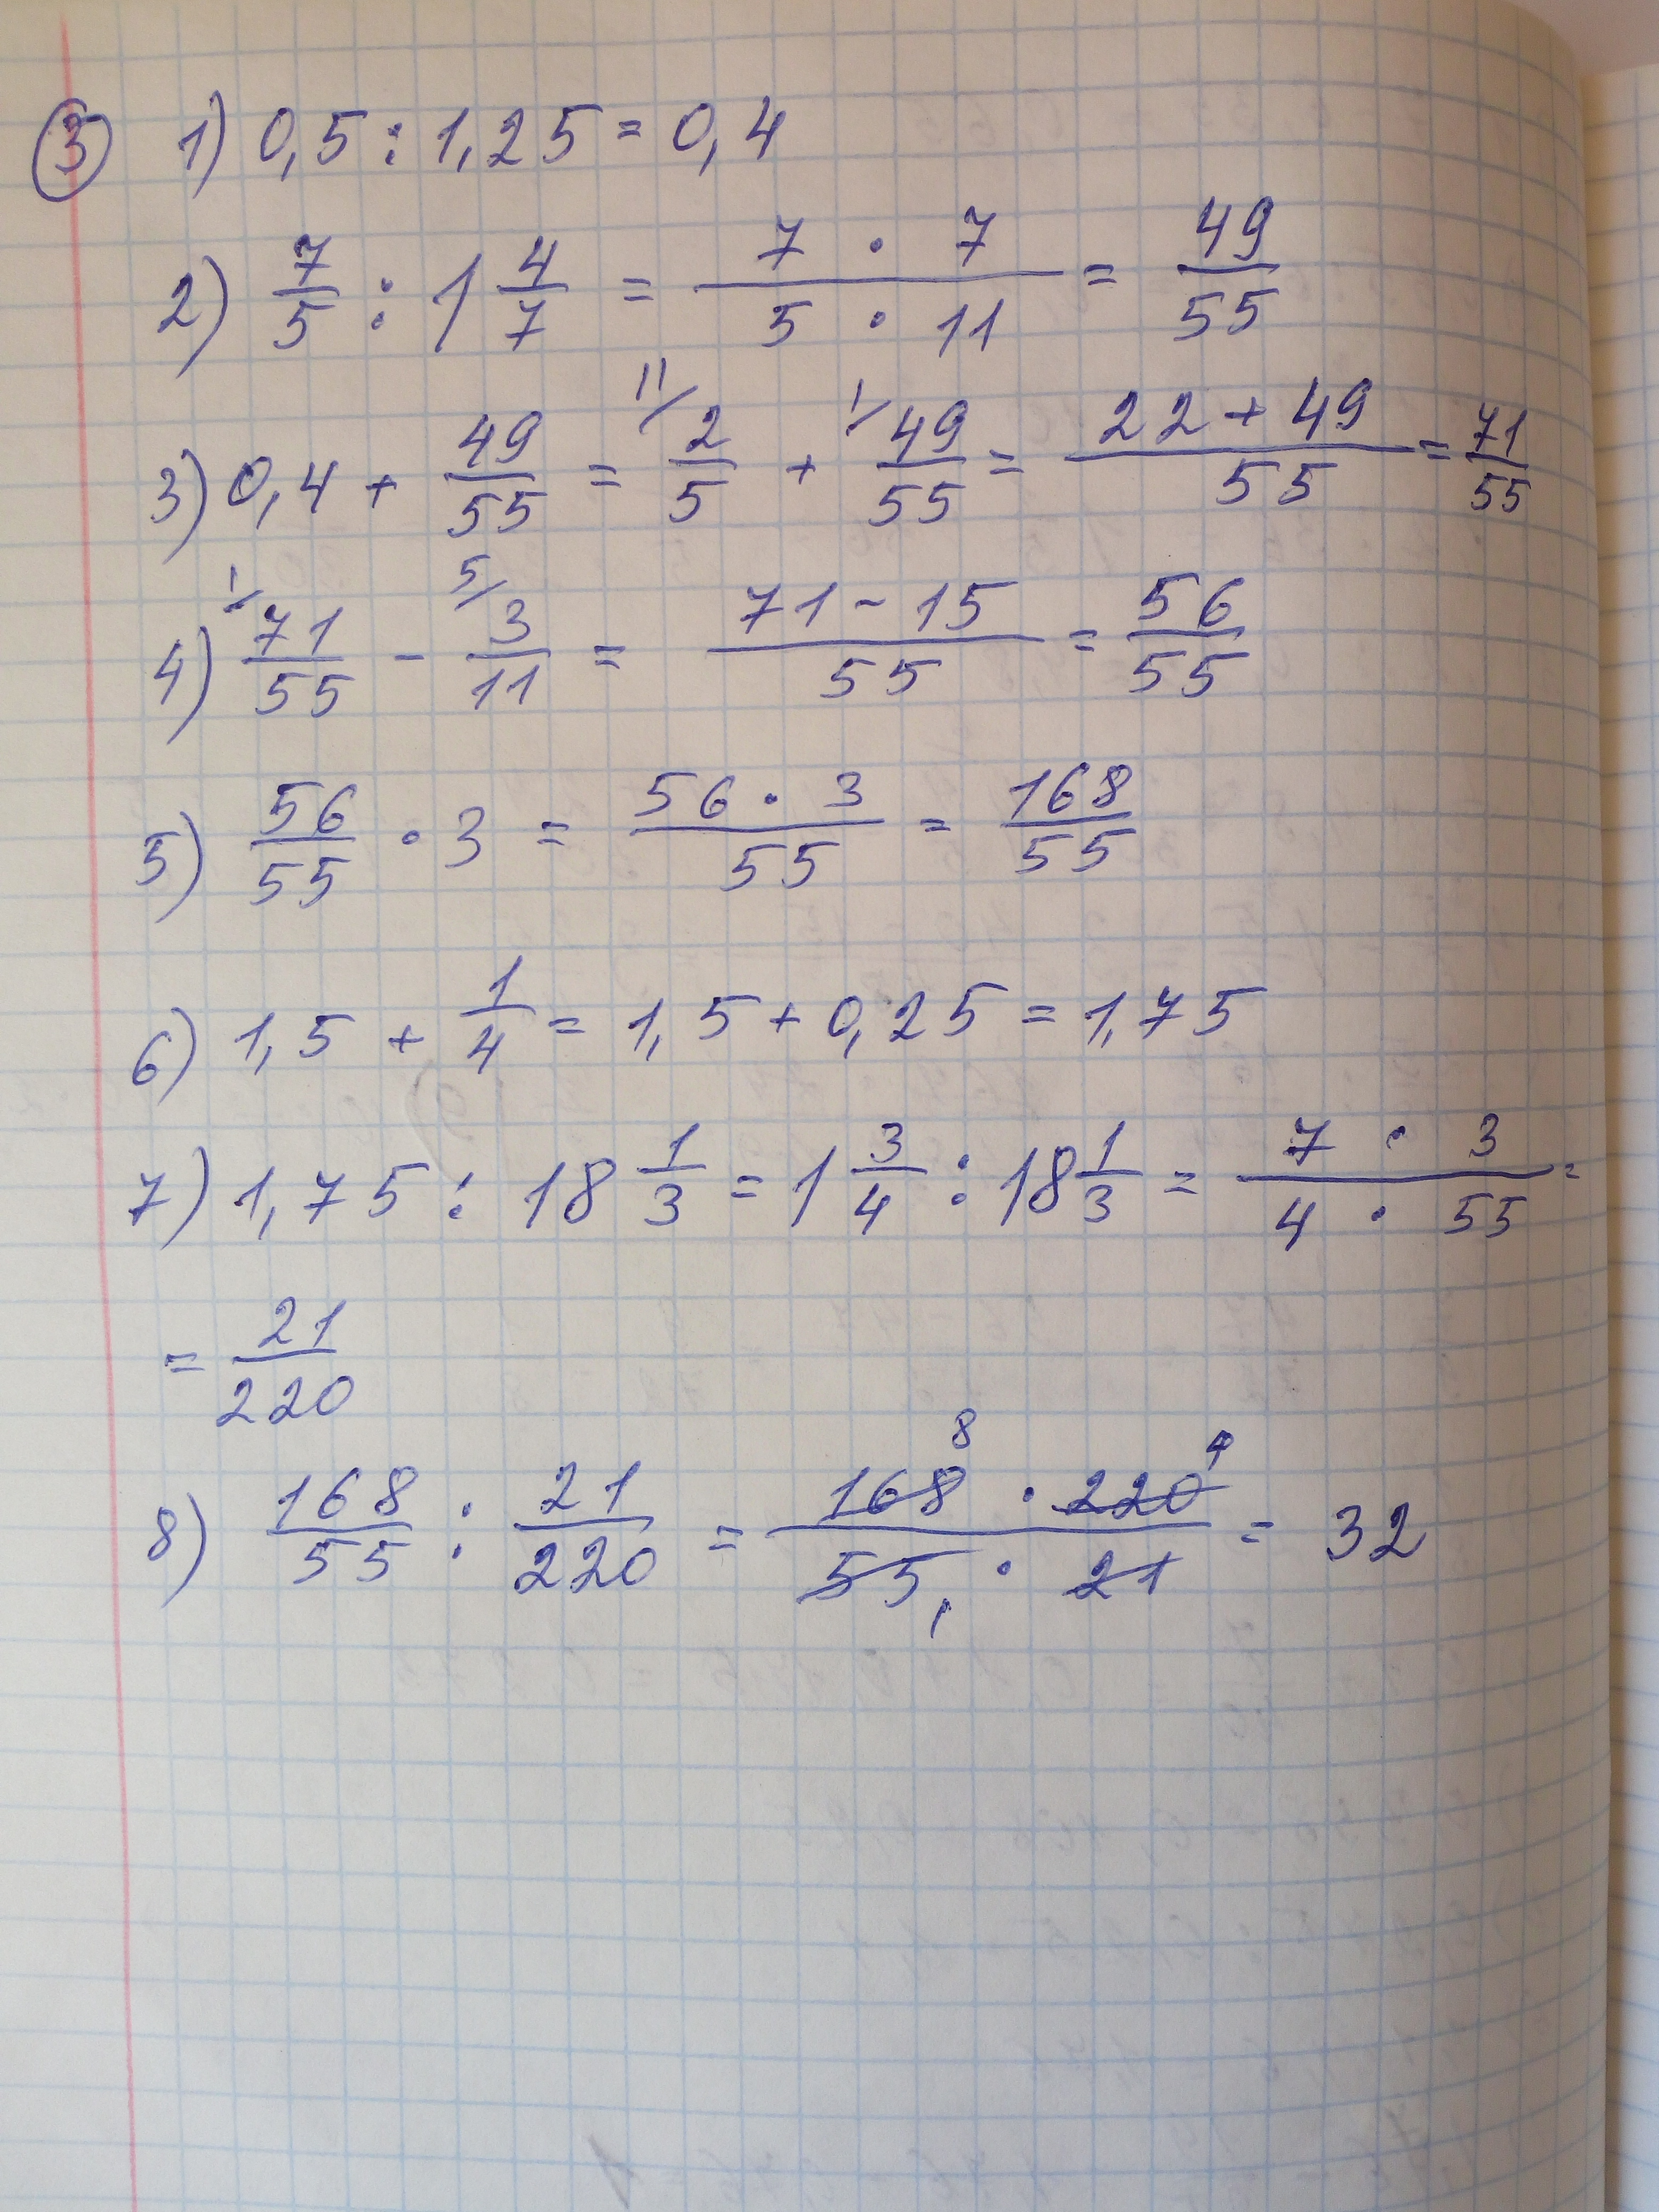 3 1) 0,5 : 1,25 = 0,4
2) 7/5 : 1 4/7 = (7 · 7)/(5 · 11) = 49/55
3) 0,4 + 49/55 = 11/ 2/5 + 1/ 49/55 = (22 + 49)/55 = 71/55
4) 1/ 71/55 - 5/ 3/11 = (71 - 15)/55 = 56/55
5) 56/55 · 3 = (56 · 3)/55 = 168/55
6) 1,5 + 1/4 = 1,5 + 0,25 = 1,75
7) 1,75 : 18 1/3 = 1 3/4 : 18 1/3 = (7 · 3)/(4 · 55) =
= 21/220
8) 168/55 : 21/220 = (168 8 · 220 4)/(55 1 · 21) = 32